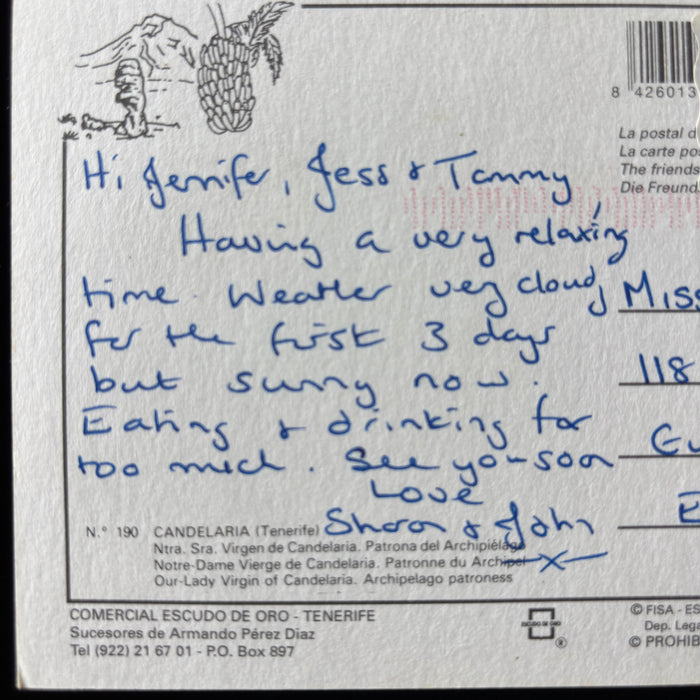 8 426013
La postal d
La carte po
The friends
Die Freund
Hi Jennifer, Jess & Tammy
Having a very relaxing
time. Weather very cloudy
for the first 3 days
but sunny now.
Eating & drinking far
too much. See you soon
Love
Sharon & John
X
Miss
118
Gu
E
N.° 190 CANDELARIA (Tenerife)
Ntra. Sra. Virgen de Candelaria. Patrona del Archipiélago
Notre-Dame Vierge de Candelaria. Patronne du Archipel
Our-Lady Virgin of Candelaria. Archipelago patroness
COMERCIAL ESCUDO DE ORO - TENERIFE
Sucesores de Armando Pérez Diaz
Tel (922) 21 67 01 - P.O. Box 897
ESCUDO DE ORO
®
© FISA - ES
Dep. Lega
© PROHIB